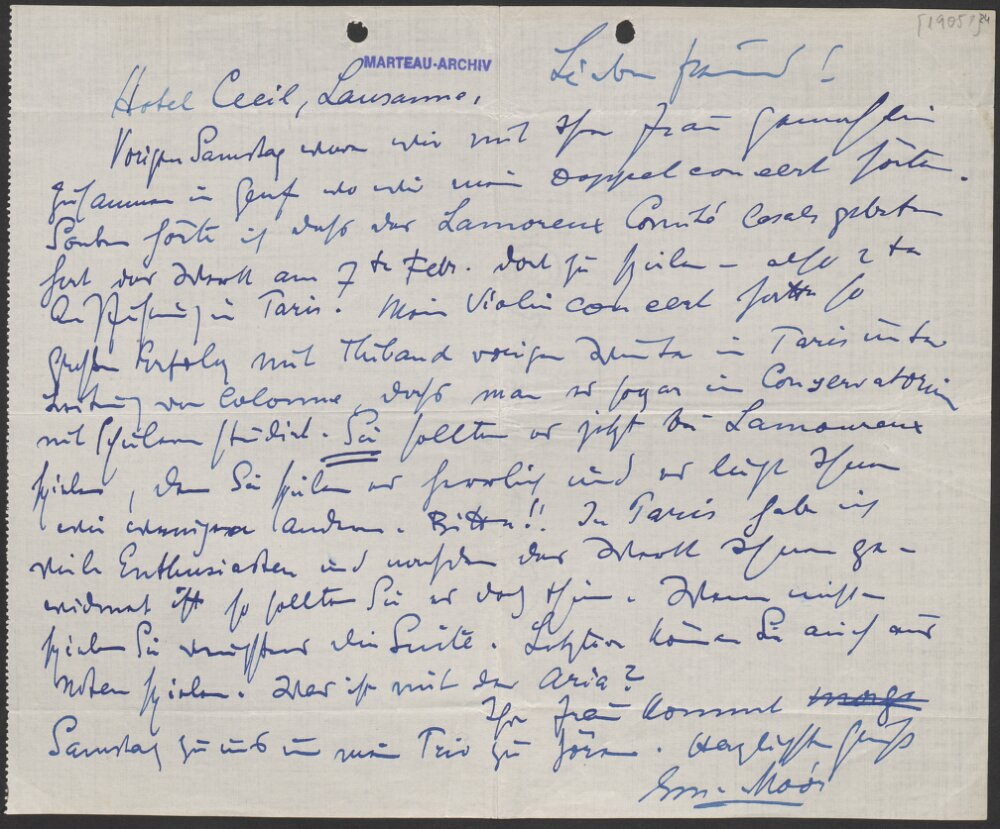 [1905?] 24
MARTEAU-ARCHIV
Lieber Freund!
Hotel Cecil, Lausanne,
Vorigen Samstag waren wir mit Ihrer Frau Gemahlin
zusammen in Genf wo wir mein Doppelconcert hörten.
Soeben hörte ich dass das Lamoreux Comité Casals gebeten
hat das Werk am 7ten Febr. dort zu spielen – also 2te
Aufführung in Paris. Mein Violinconcert hatte so
großen Erfolg mit Thibaud vorigen Winter in Paris unter
Leitung von Colonne, dass man es sogar im Conservatorium
mit Schülern studiert. Sie sollten es jetzt bei Lamoureux
spielen, denn Sie spielen es herrlich und es liegt Ihnen
wie wenigen andern. Bitte!! In Paris habe ich
viele Enthusiasten und nachdem das Werk Ihnen ge-
widmet ist so sollten Sie es doch thun. Wenn nicht
spielen Sie die Suite. Letztere können Sie auch aus
Noten spielen. Was ist mit der Aria?
Ihre Frau kommt morgen
Samstag zu uns um mein Trio zu hören. Herzlichste Grüße
Em. Moór